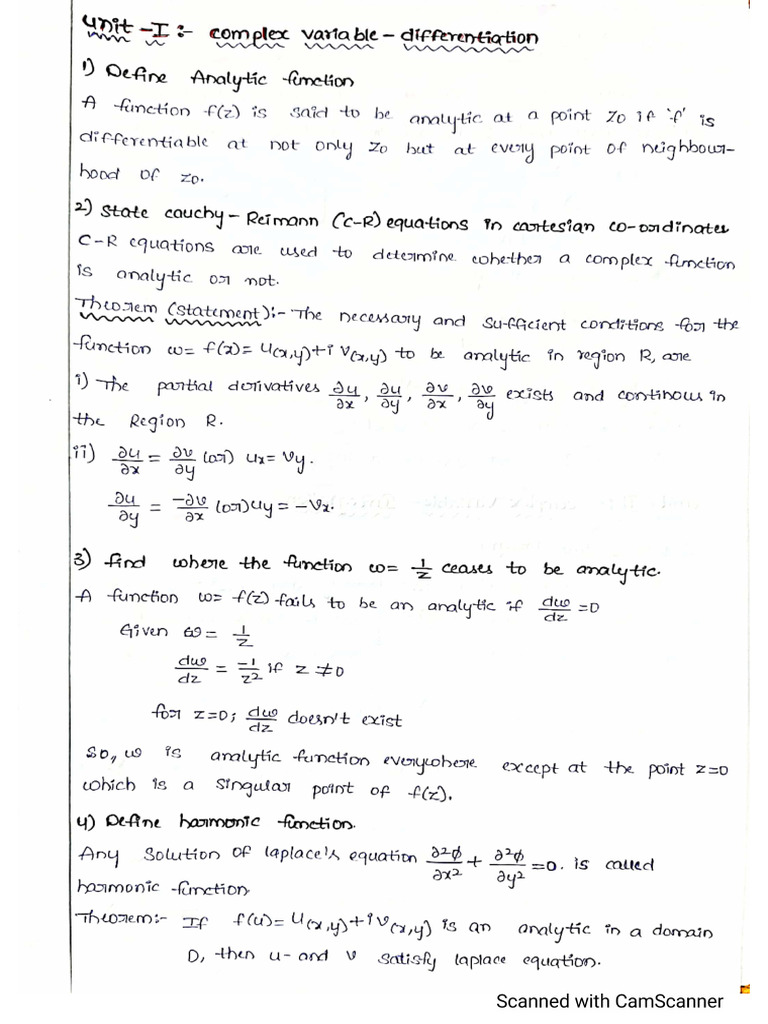 Unit -I :- complex variable - differentiation
1) Define Analytic function
A function f(z) is said to be analytic at a point zo if 'f' is
differentiable at not only zo but at every point of neighbour-
hood of zo.
2) State cauchy - Reimann (C-R) equations in cartesian co-ordinates
C-R equations are used to determine whether a complex function
is analytic or not.
Theorem (statement):- The necessary and sufficient conditions for the
function w= f(z)= u(x,y)+i v(x,y) to be analytic in region R, are
i) The partial derivatives ∂u/∂x, ∂u/∂y, ∂v/∂x, ∂v/∂y exists and continous in
the Region R.
ii) ∂u/∂x = ∂v/∂y (or) ux= vy.
∂u/∂y = -∂v/∂x (or) uy= -vx.
3) find where the function w= 1/z ceases to be analytic.
A function w= f(z) fails to be an analytic if dw/dz =0
Given w = 1/z
dw/dz = -1/z² if z ≠0
for z=0; dw/dz doesn't exist
So, w is analytic function everywhere except at the point z=0
which is a singular point of f(z).
4) Define harmonic function.
Any solution of laplace's equation ∂²φ/∂x² + ∂²φ/∂y² =0. is called
harmonic function
Theorem:- If f(u)= u(x,y)+iv(x,y) is an analytic in a domain
D, then u- and v satisfy laplace equation.
Scanned with CamScanner